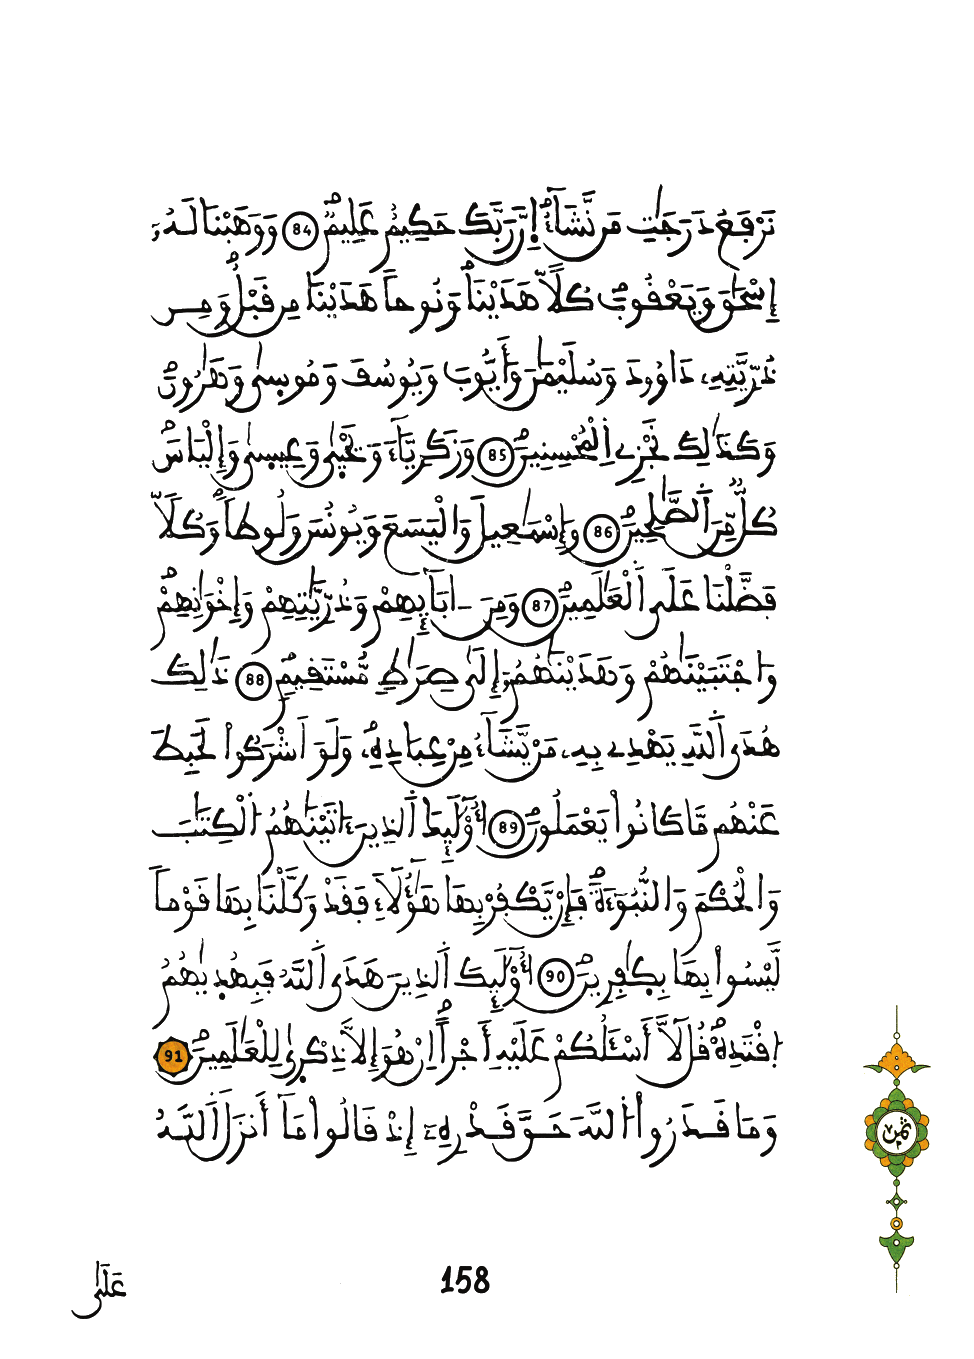 نَرْفَعُ دَرَجَٰتِ مَن نَّشَآءُ اِ۪نَّ رَبَّكَ حَكِيمٌ عَلِيمٌۖ 84 وَوَهَبْنَا لَهُۥٓ
إِسْحَٰقَ وَيَعْقُوبَۖ كُلّاً هَدَيْنَاۖ وَنُوحاً هَدَيْنَا مِن قَبْلُۖ وَمِن
ذُرِّيَّتِهِۦ دَاوُۥدَ وَسُلَيْمَٰنَ وَأَيُّوبَ وَيُوسُفَ وَمُوس۪يٰ وَهَٰرُونَۖ
وَكَذَٰلِكَ نَجْزِے اِ۬لْمُحْسِنِينَۖ 85 وَزَكَرِيَّآءَ وَيَحْي۪يٰ وَعِيس۪يٰ وَإِلْيَاسَۖ
كُلٌّ مِّنَ اَ۬لصَّٰلِحِينَۖ 86 وَإِسْمَٰعِيلَ وَالْيَسَعَ وَيُونُسَ وَلُوطاًۖ وَكُلّاً
فَضَّلْنَا عَلَي اَ۬لْعَٰلَمِينَۖ 87 وَمِنَ اٰبَآئِهِمْ وَذُرِّيَّٰتِهِمْ وَإِخْوَٰنِهِمْۖ
وَاجْتَبَيْنَٰهُمْ وَهَدَيْنَٰهُمُۥٓ إِلَيٰ صِرَٰطٖ مُّسْتَقِيمٖۖ 88 ذَٰلِكَ
هُدَي اَ۬للَّهِ يَهْدِے بِهِۦ مَنْ يَّشَآءُ مِنْ عِبَادِهِۦۖ وَلَوَ اَشْرَكُواْ لَحَبِطَ
عَنْهُم مَّا كَانُواْ يَعْمَلُونَۖ 89 أُوْلَٰٓئِكَ اَ۬لذِينَ ءَاتَيْنَٰهُمُ اُ۬لْكِتَٰبَ
وَالْحُكْمَ وَالنُّبُوٓءَةَۖ فَإِنْ يَّكْفُرْ بِهَا هَٰٓؤُلَآءِ فَقَدْ وَكَّلْنَا بِهَا قَوْماً
لَّيْسُواْ بِهَا بِكٰ۪فِرِينَۖ 90 أُوْلَٰٓئِكَ اَ۬لذِينَ هَدَي اَ۬للَّهُ فَبِهُد۪يٰهُمُ
اُ۪قْتَدِهْۖ قُل لَّآ أَسْـَٔلُكُمْ عَلَيْهِ أَجْراًۖ اِنْ هُوَ إِلَّا ذِكْر۪يٰ لِلْعَٰلَمِينَۖ 91
وَمَا قَدَرُواْ اُ۬للَّهَ حَقَّ قَدْرِهِۦٓ إِذْ قَالُواْ مَآ أَنزَلَ اَ۬للَّهُ
ثمن
158
عَلَيٰ